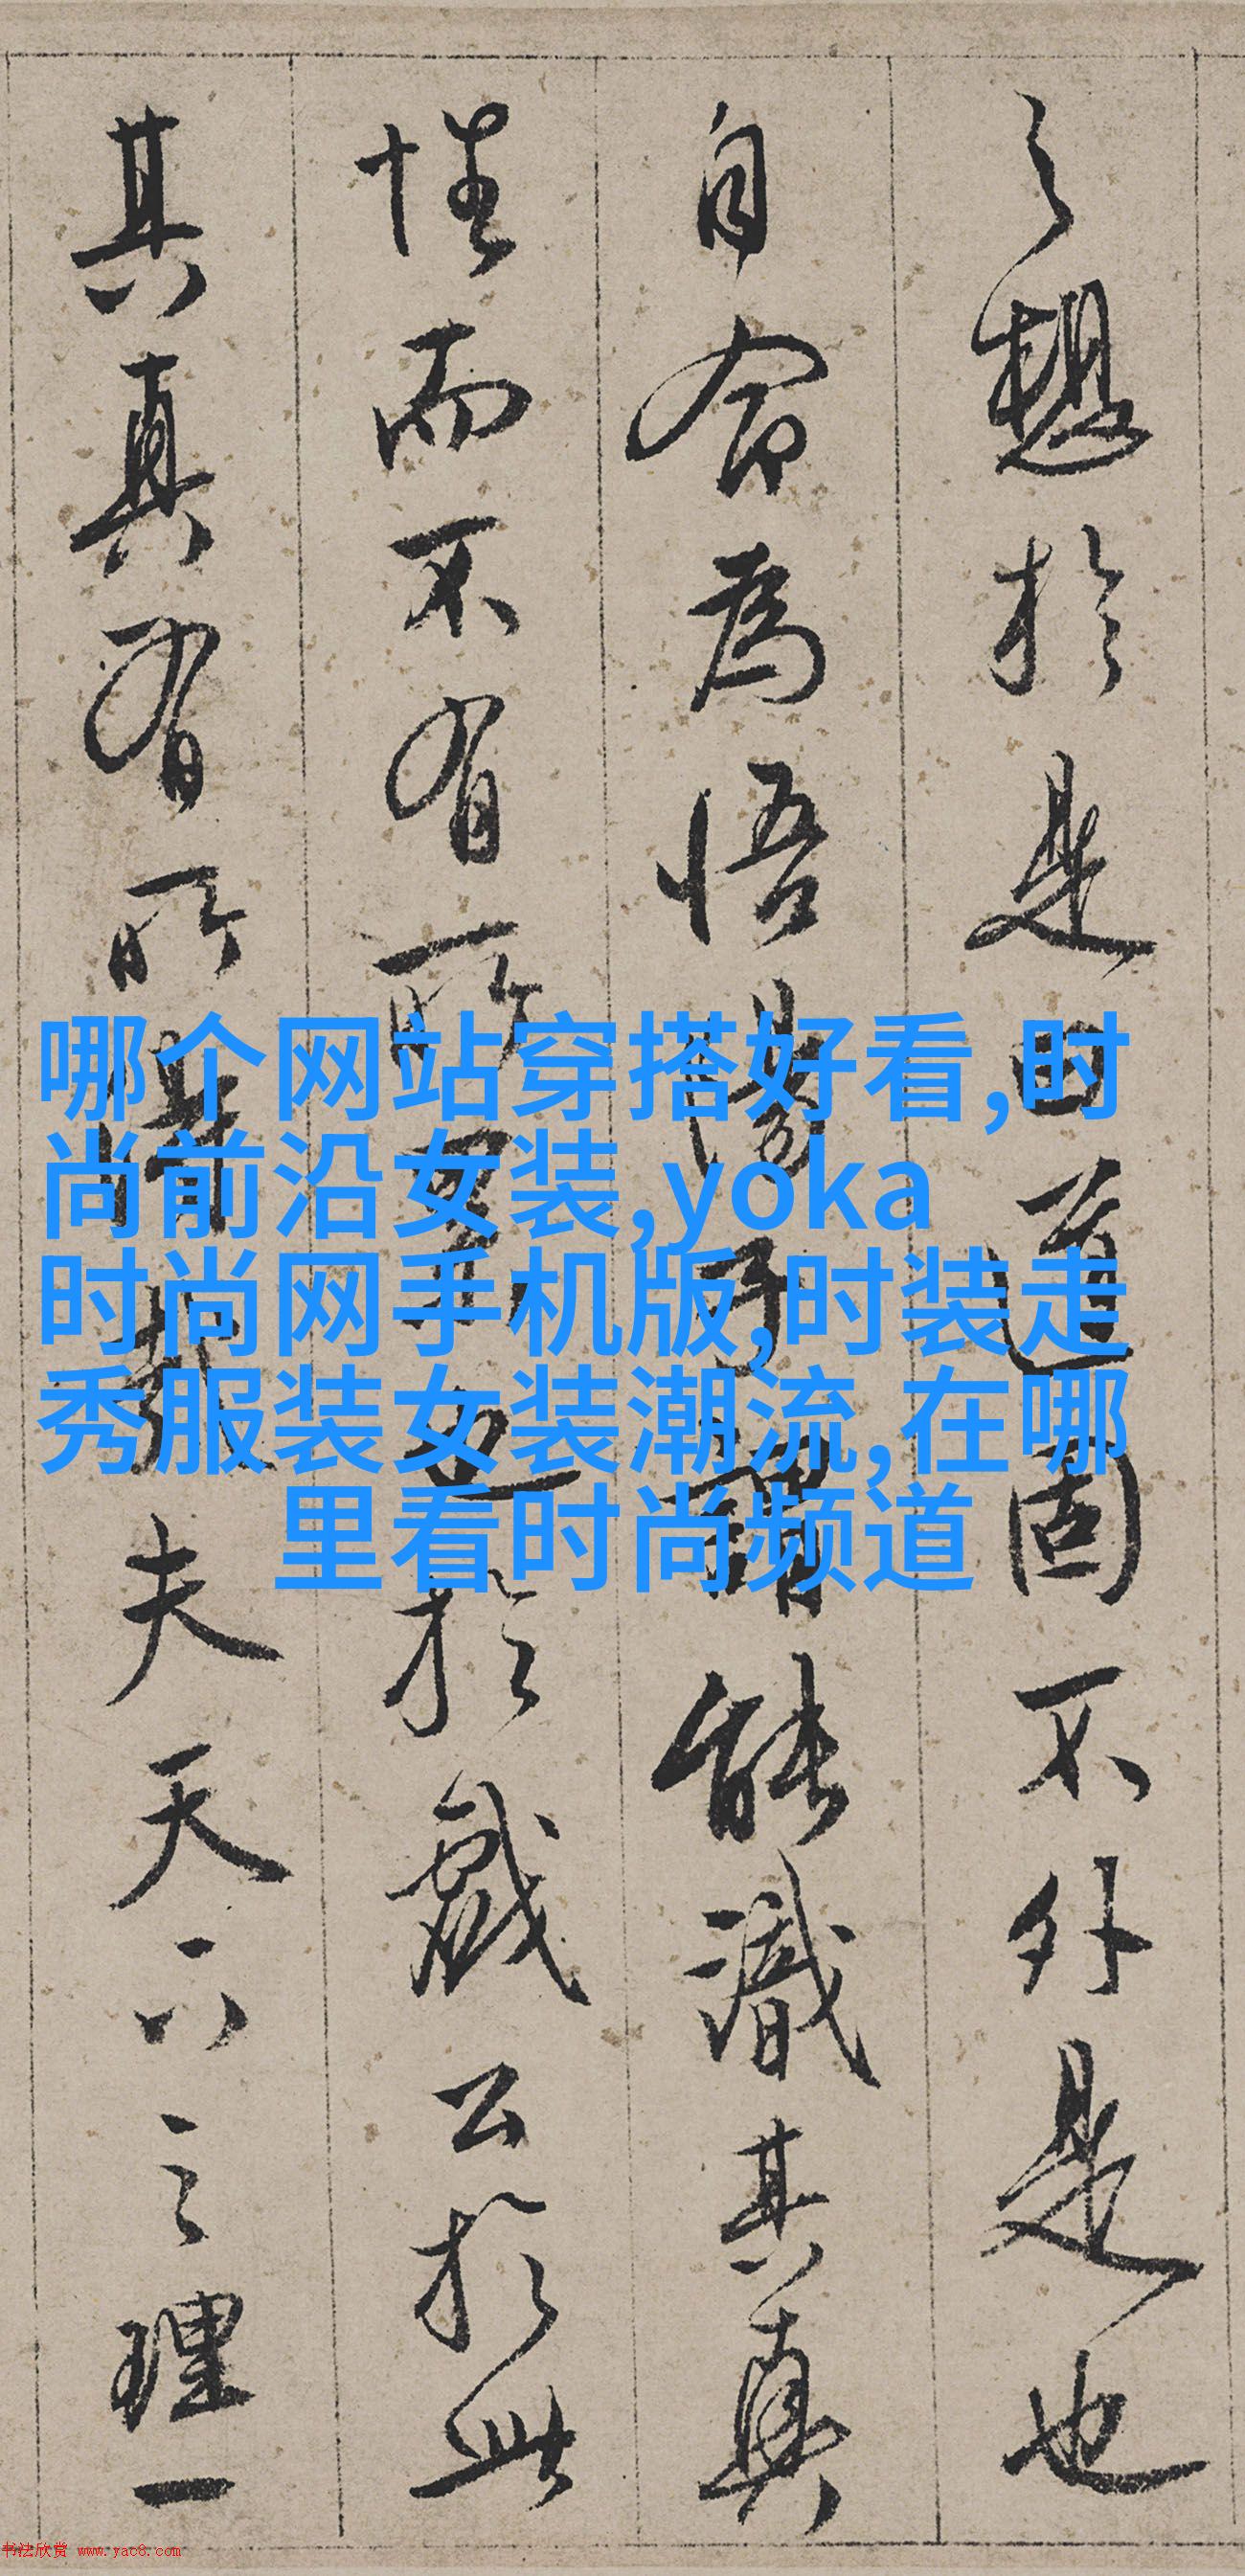 之想於是曰道固不外是也
自以为悟
能識其真
性而不有所
於戲公於此
其真有所
夫天下之理一
哪个网站穿搭好看,时
尚前沿女装,yoka
时尚网手机版,时装走
秀服装女装潮流,在哪
里看时尚频道
书法欣赏 www.yac8.com